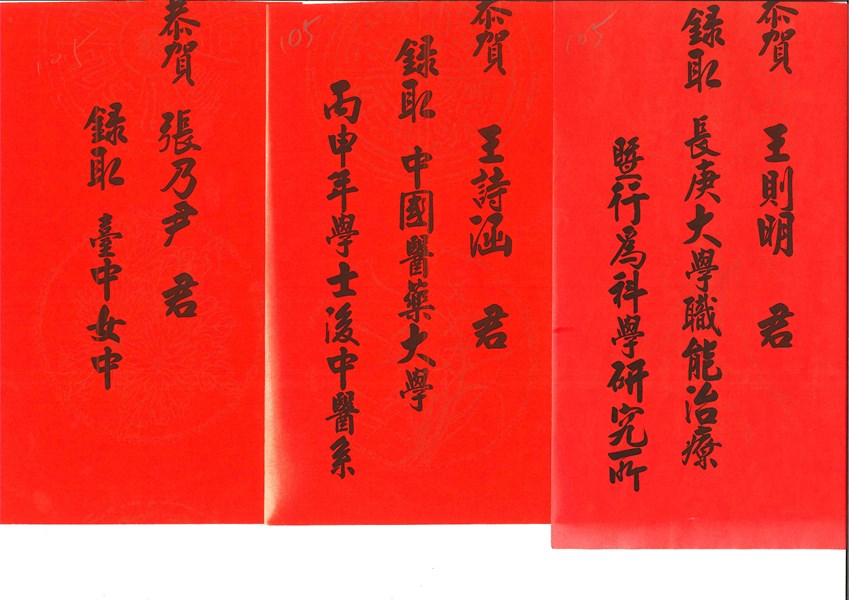 105
恭賀 王則明 君
錄取 長庚大學職能治療
暨行為科學研究所
105
恭賀 王詩涵 君
錄取 中國醫藥大學
丙申年學士後中醫系
105
恭賀 張乃尹 君
錄取 臺中女中